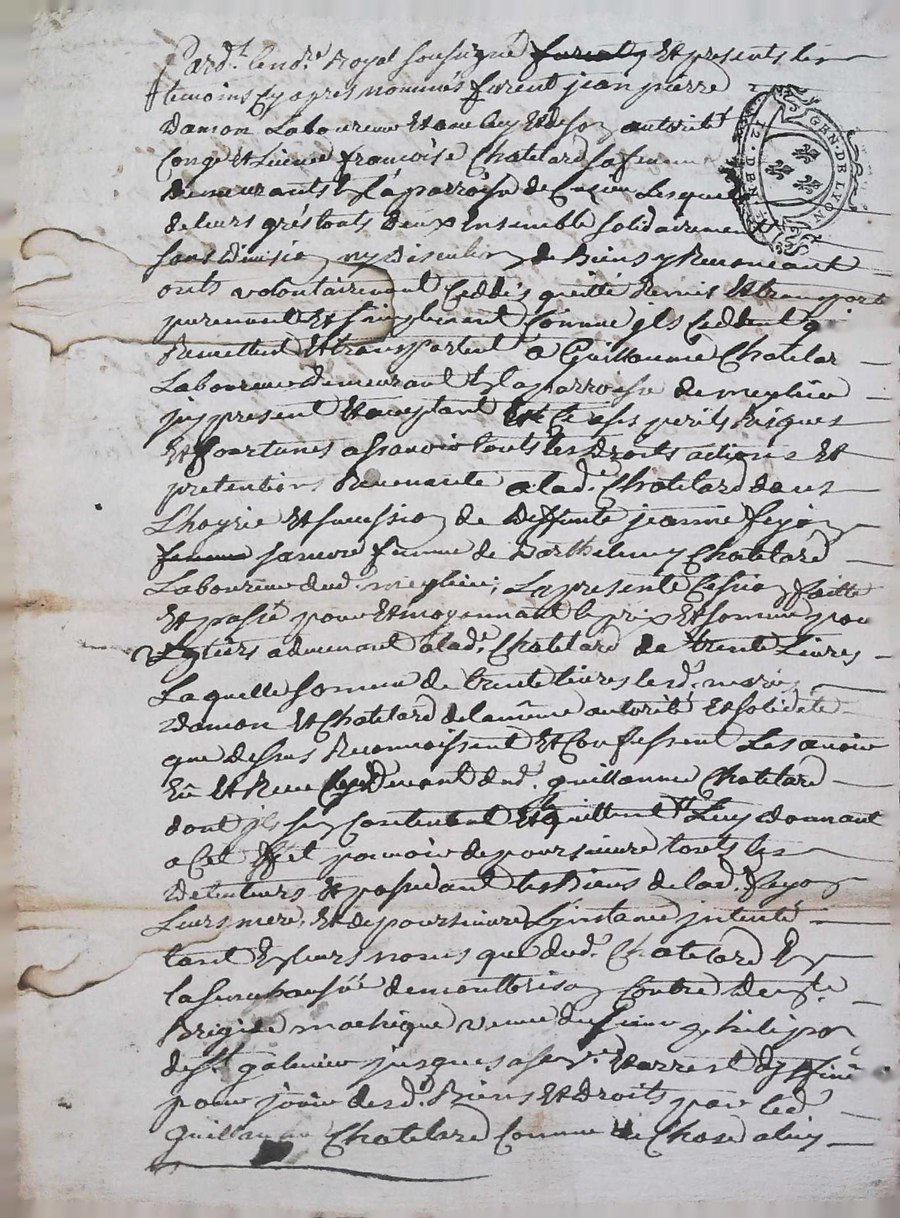 Pard.t le no.re Royal sousigné furent Et presents les
temoins cy apres nommés furent jean pierre
Damon Laboureur Et de luy Et de son autorité
Congé Et Licence francoise Chatelard sa femme
demeurants En la parroisse de Lesquels
de leurs grés touts deux Ensemble solidairement
sans division ny discution de Biens y Renoncant
onts volontairement Ceddés quitté Remis Et transporté
purement Et simplement Comme ils Ceddent q
Remettent Et transportent a Guillaume Chatelar
Laboureur demeurant En la parroisse de meylieu
icy present Et acceptant Et a ses perils Risques
Et fourtunes a scavoir touts les Droits actions Et
pretentions Revenants a lad.e Chatelard dans
L'hoyrie Et succession de Deffunte jeanne feyjon
femme sa mere femme de Barthelemy Chatelard
Laboureur dud. meylieu; La presente Cession faitte
Et passé pour Et moyennant le prix Et somme pou
Le tiers advenant a lad.e Chatelard de trente Livres
Laquelle somme de trente livres lesd. mariés
Damon Et Chatelard de la même autorité Et solidité
que dessus Reconnoissent Et Confessent Les avoir
Eû Et Receu Cy devant dud. guillaume Chatelard
dont ils se Contentent Et quittent Luy donnant
a Cet Effet pouvoir de poursuivre touts les
Detenteurs Et possedant les Biens de lad. feyjon
Leurs mere, Et de poursuivre L'jnstance jntenté
tant En leurs noms que dud. Chatelard En
la senechaussée de montbrison Contre Dem.lle
Brigide machique veuve du sieur philipon
de St. galmier jusques a sentence Et arrest deffinitif
pour jouir desd. Biens Et droits par led.
Guillaume Chatelard Comme de Chose a luy
GEN. DE LYON
12. DEN.